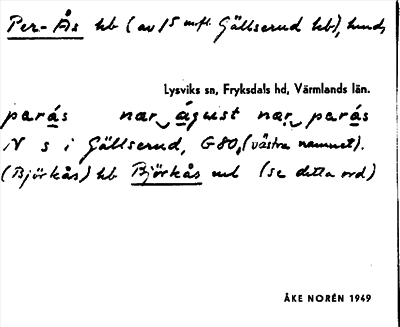 Per-Ås hb (av 15 mfl. Gällserud hb), hmd,
Lysviks sn, Fryksdals hd, Värmlands län.
parás nær águst nær parás
N s i Gällserud, G80, (västra namnet).
(Björkås) hb Björkås (se detta ord)
ÅKE NORÉN 1949